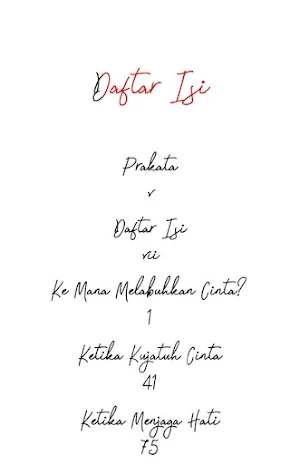 Daftar Isi
Prakata
v
Daftar Isi
vii
Ke Mana Melabuhkan Cinta?
1
Ketika Kujatuh Cinta
41
Ketika Menjaga Hati
75